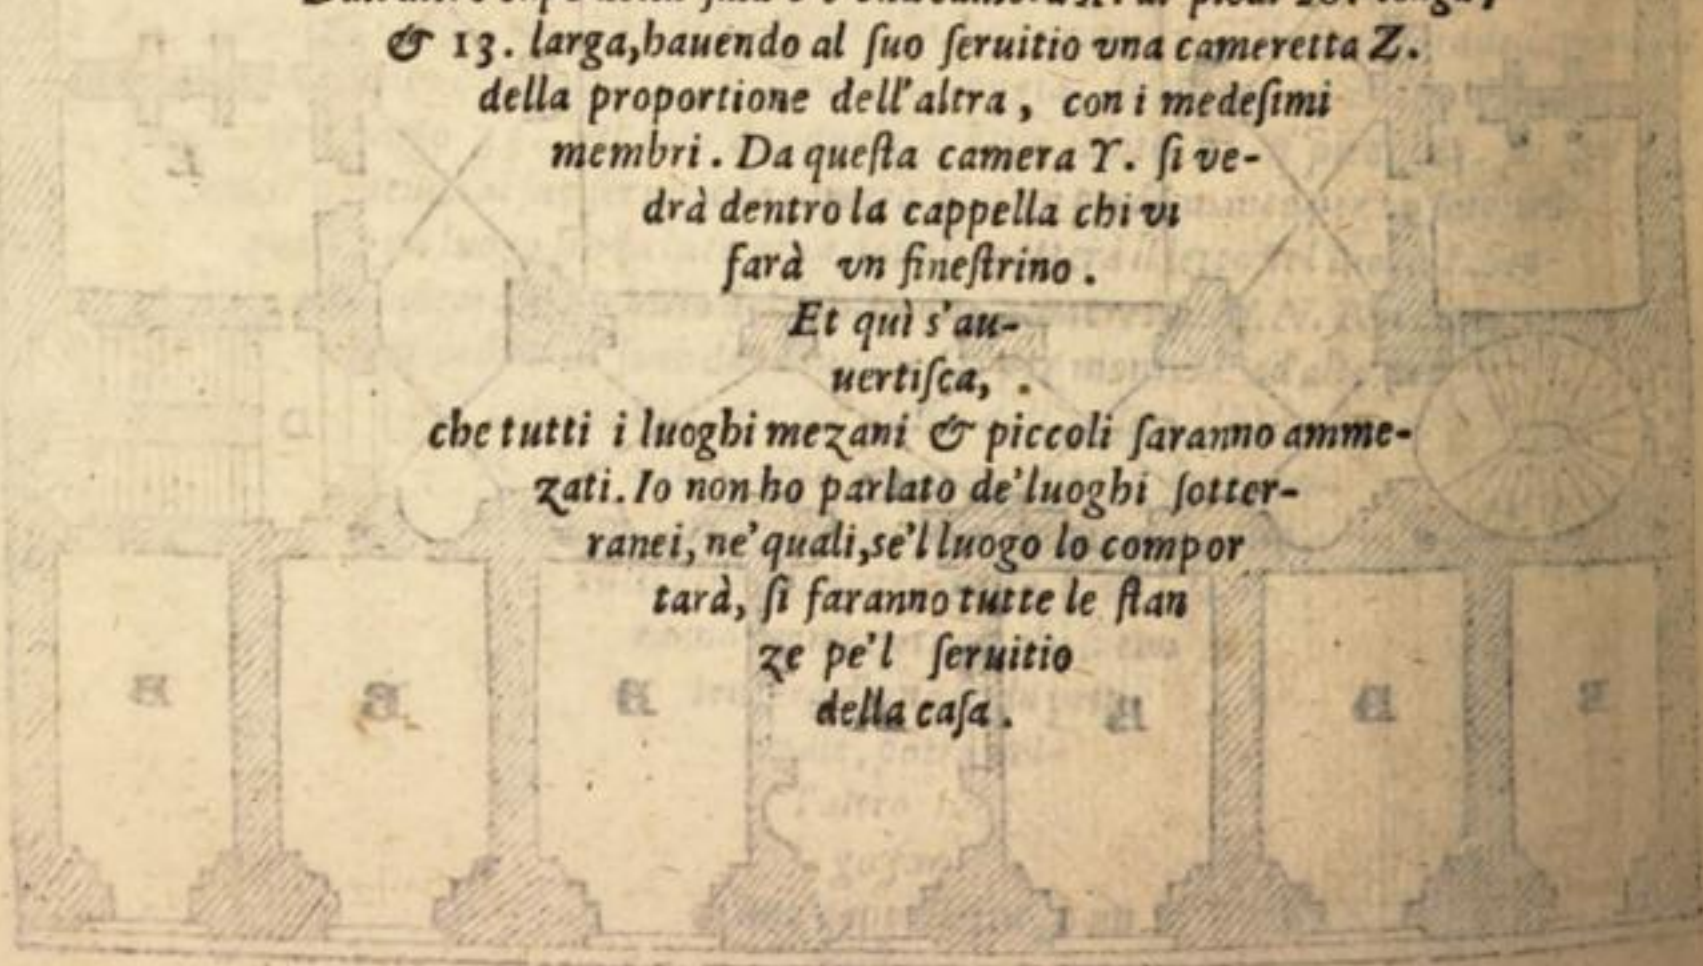 & 13. larga,hauendo al ſuo ſeruitio vna cameretta Z.
della proportione dell'altra, con i medeſimi
membri. Da queſta camera Y. ſi ve-
drà dentro la cappella chi vi
farà vn fineſtrino.
Et quì s'au-
uertiſca,
che tutti i luoghi mezani & piccoli ſaranno amme-
zati. Io non ho parlato de'luoghi ſotter-
ranei, ne'quali,se'l luogo lo compor
tarà, ſi faranno tutte le ſtan
ze pe'l ſeruitio
della caſa.
B B B B B B